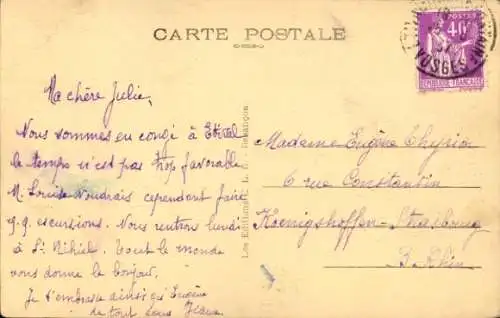 CARTE POSTALE
POSTES
40c
REPUBLIQUE FRANÇAISE
VOSGES
Ma chère Julie,
Nous sommes en congé à Etival
le temps n'est pas trop favorable
M. Louise voudrais cependant faire
q.q. escursions. Nous rentrons lundi
à St. Mihiel. Tout le monde
vous donne le bonjour.
Je t'embrasse ainsi qu'Eugène
de tout cœur Jeanne
Les Editions
Madame Eugène
6 rue Constantin
Koenigshoffen-Strasbourg
B. Rhin